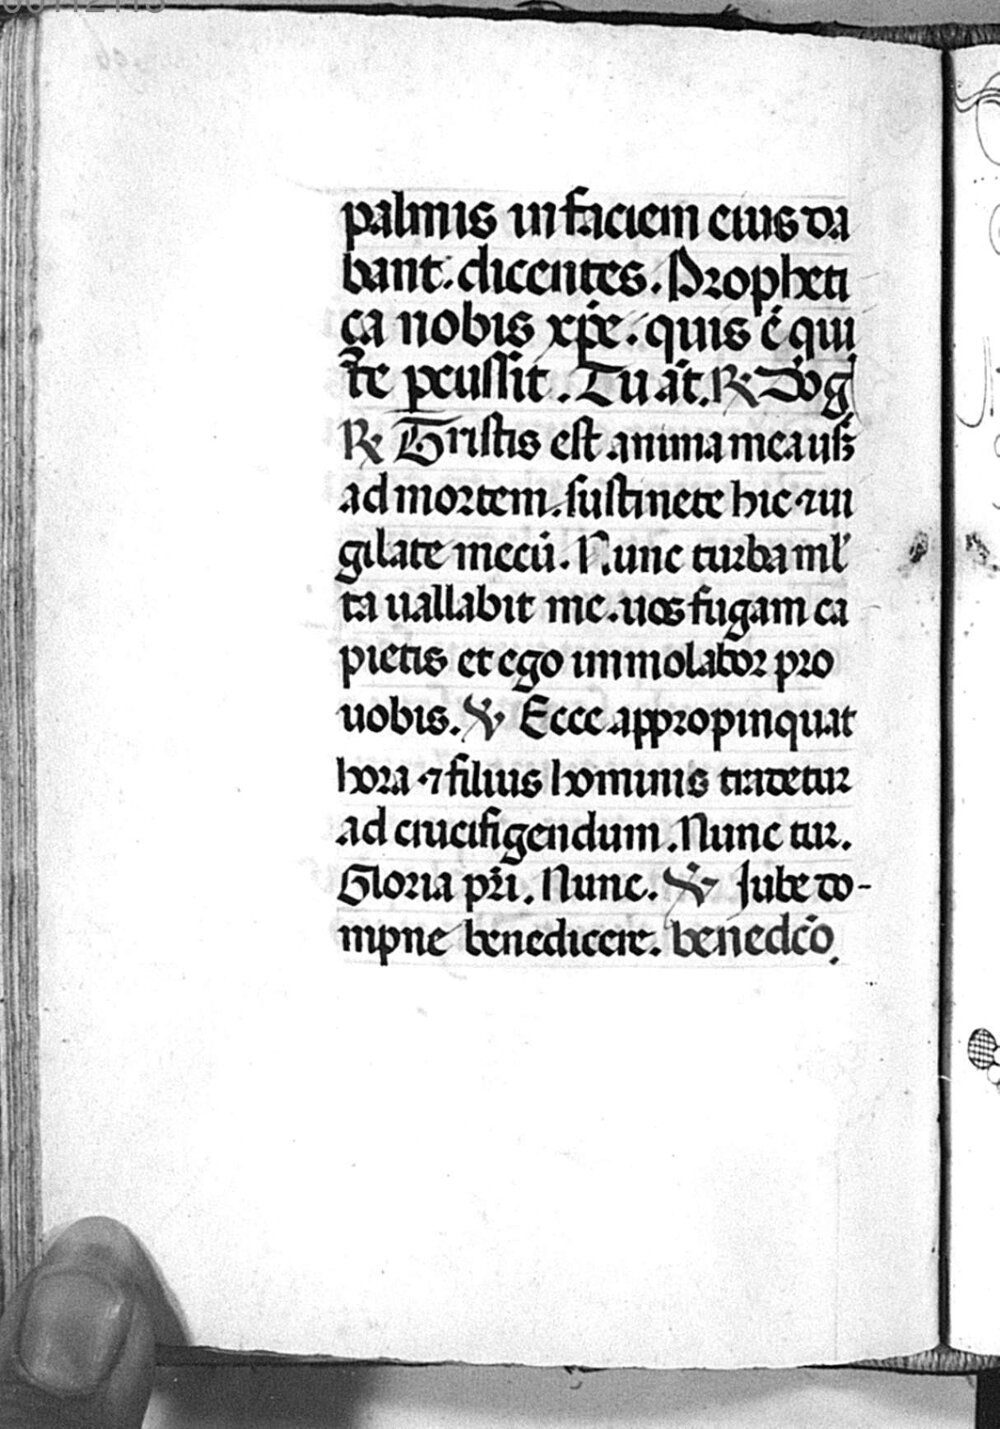 palmis in faciem eius da
bant. dicentes. Propheti
ça nobis xp̄e. quis ē qui
te p̱cussit. Tu aūt. ℟ Deo g̅
℟ Tristis est anima mea usq̄
ad mortem. sustinete hic ⁊ ui
gilate mecū. Nunc turba ml̄
ta uallabit me. uos fugam ca
pietis et ego immolabor pro
uobis. ℣ Ecce appropinquat
hora ⁊ filius hominis tradetur
ad crucifigendum. Nunc tur.
Gloria pr̄i. Nunc. ℣ Jube do-
mpne benedicere. benedcō.